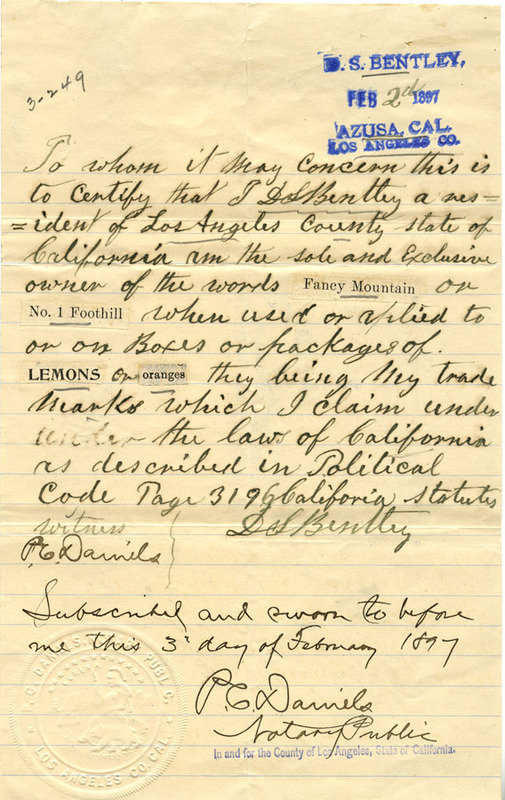 D. S. BENTLEY,
FEB 2d 1897
AZUSA, CAL.
LOS ANGELES CO.
3-249
To whom it May Concern this is
to Certify that I D S Bentley a res=
=ident of Los Angeles County state of
California am the sole and Exclusive
owner of the words Fancy Mountain or
No. 1 Foothill when used or applied to
or on Boxes or packages of.
LEMONS or oranges they being My trade
Marks which I claim under
under the laws of California
as described in Political
Code Page 3196 Califoria statutes
witness D S Bentley
P. C. Daniels
Subscribed and sworn to before
me this 3d day of February 1897
P. C. Daniels
Notary Public
In and for the County of Los Angeles, State of California.
DANIELS NOTARY PUBLIC.
LOS ANGELES CO. CAL.